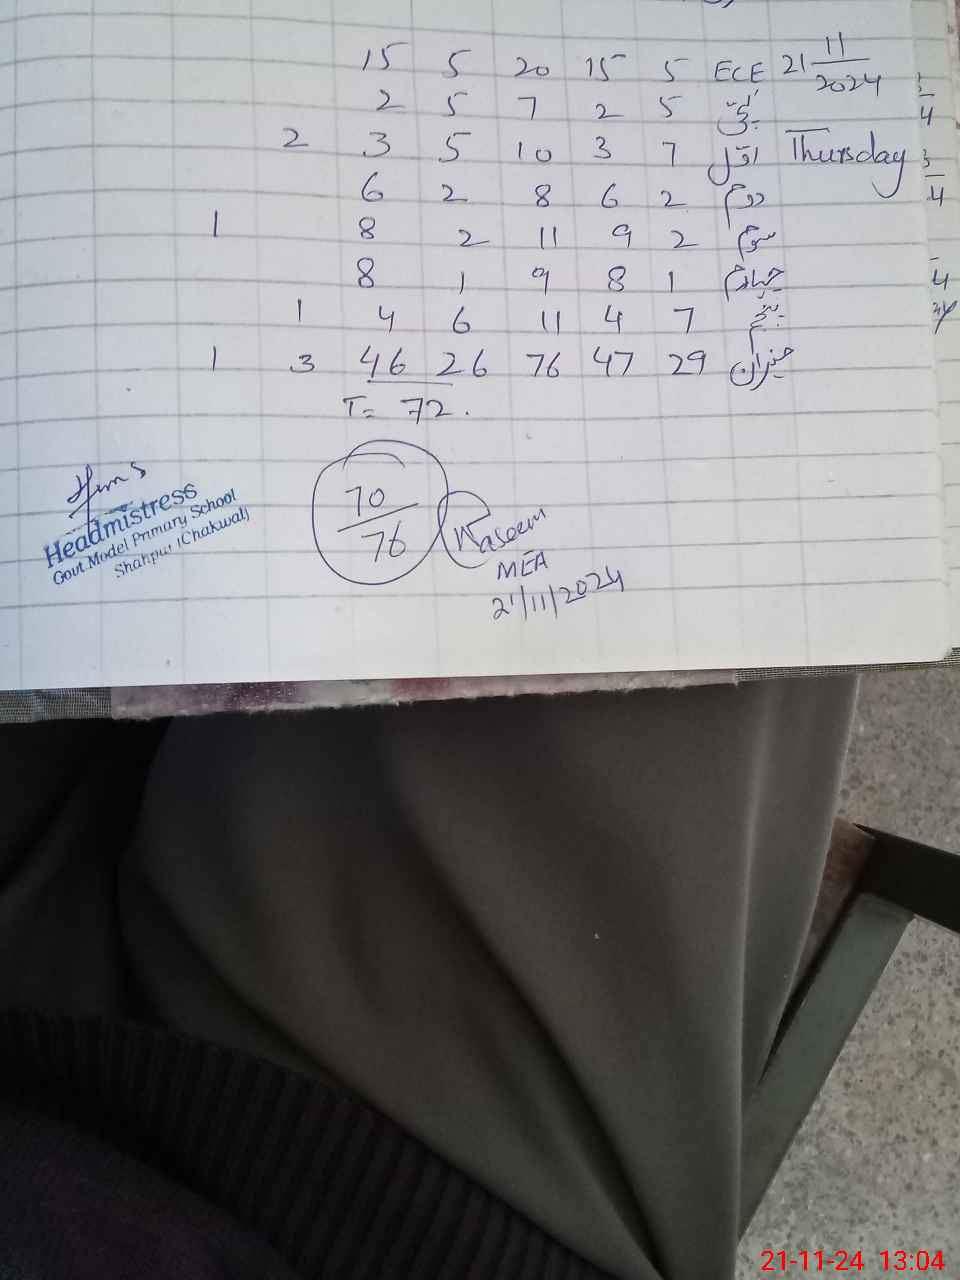 15 5 20 15 5 ECE 21 11/2024
2 5 7 2 5 پکی
2 3 5 10 3 7 اول Thursday
6 2 8 6 2 دوم
1 8 2 11 9 2 سوم
8 1 9 8 1 چہارم
1 4 6 11 4 7 پنجم
1 3 46 26 76 47 29 میزان
T= 72.
70/76
Waseem
MEA
21/11/2024
Headmistress
Govt. Model Primary School
Shahpur (Chakwal)
21-11-24 13:04